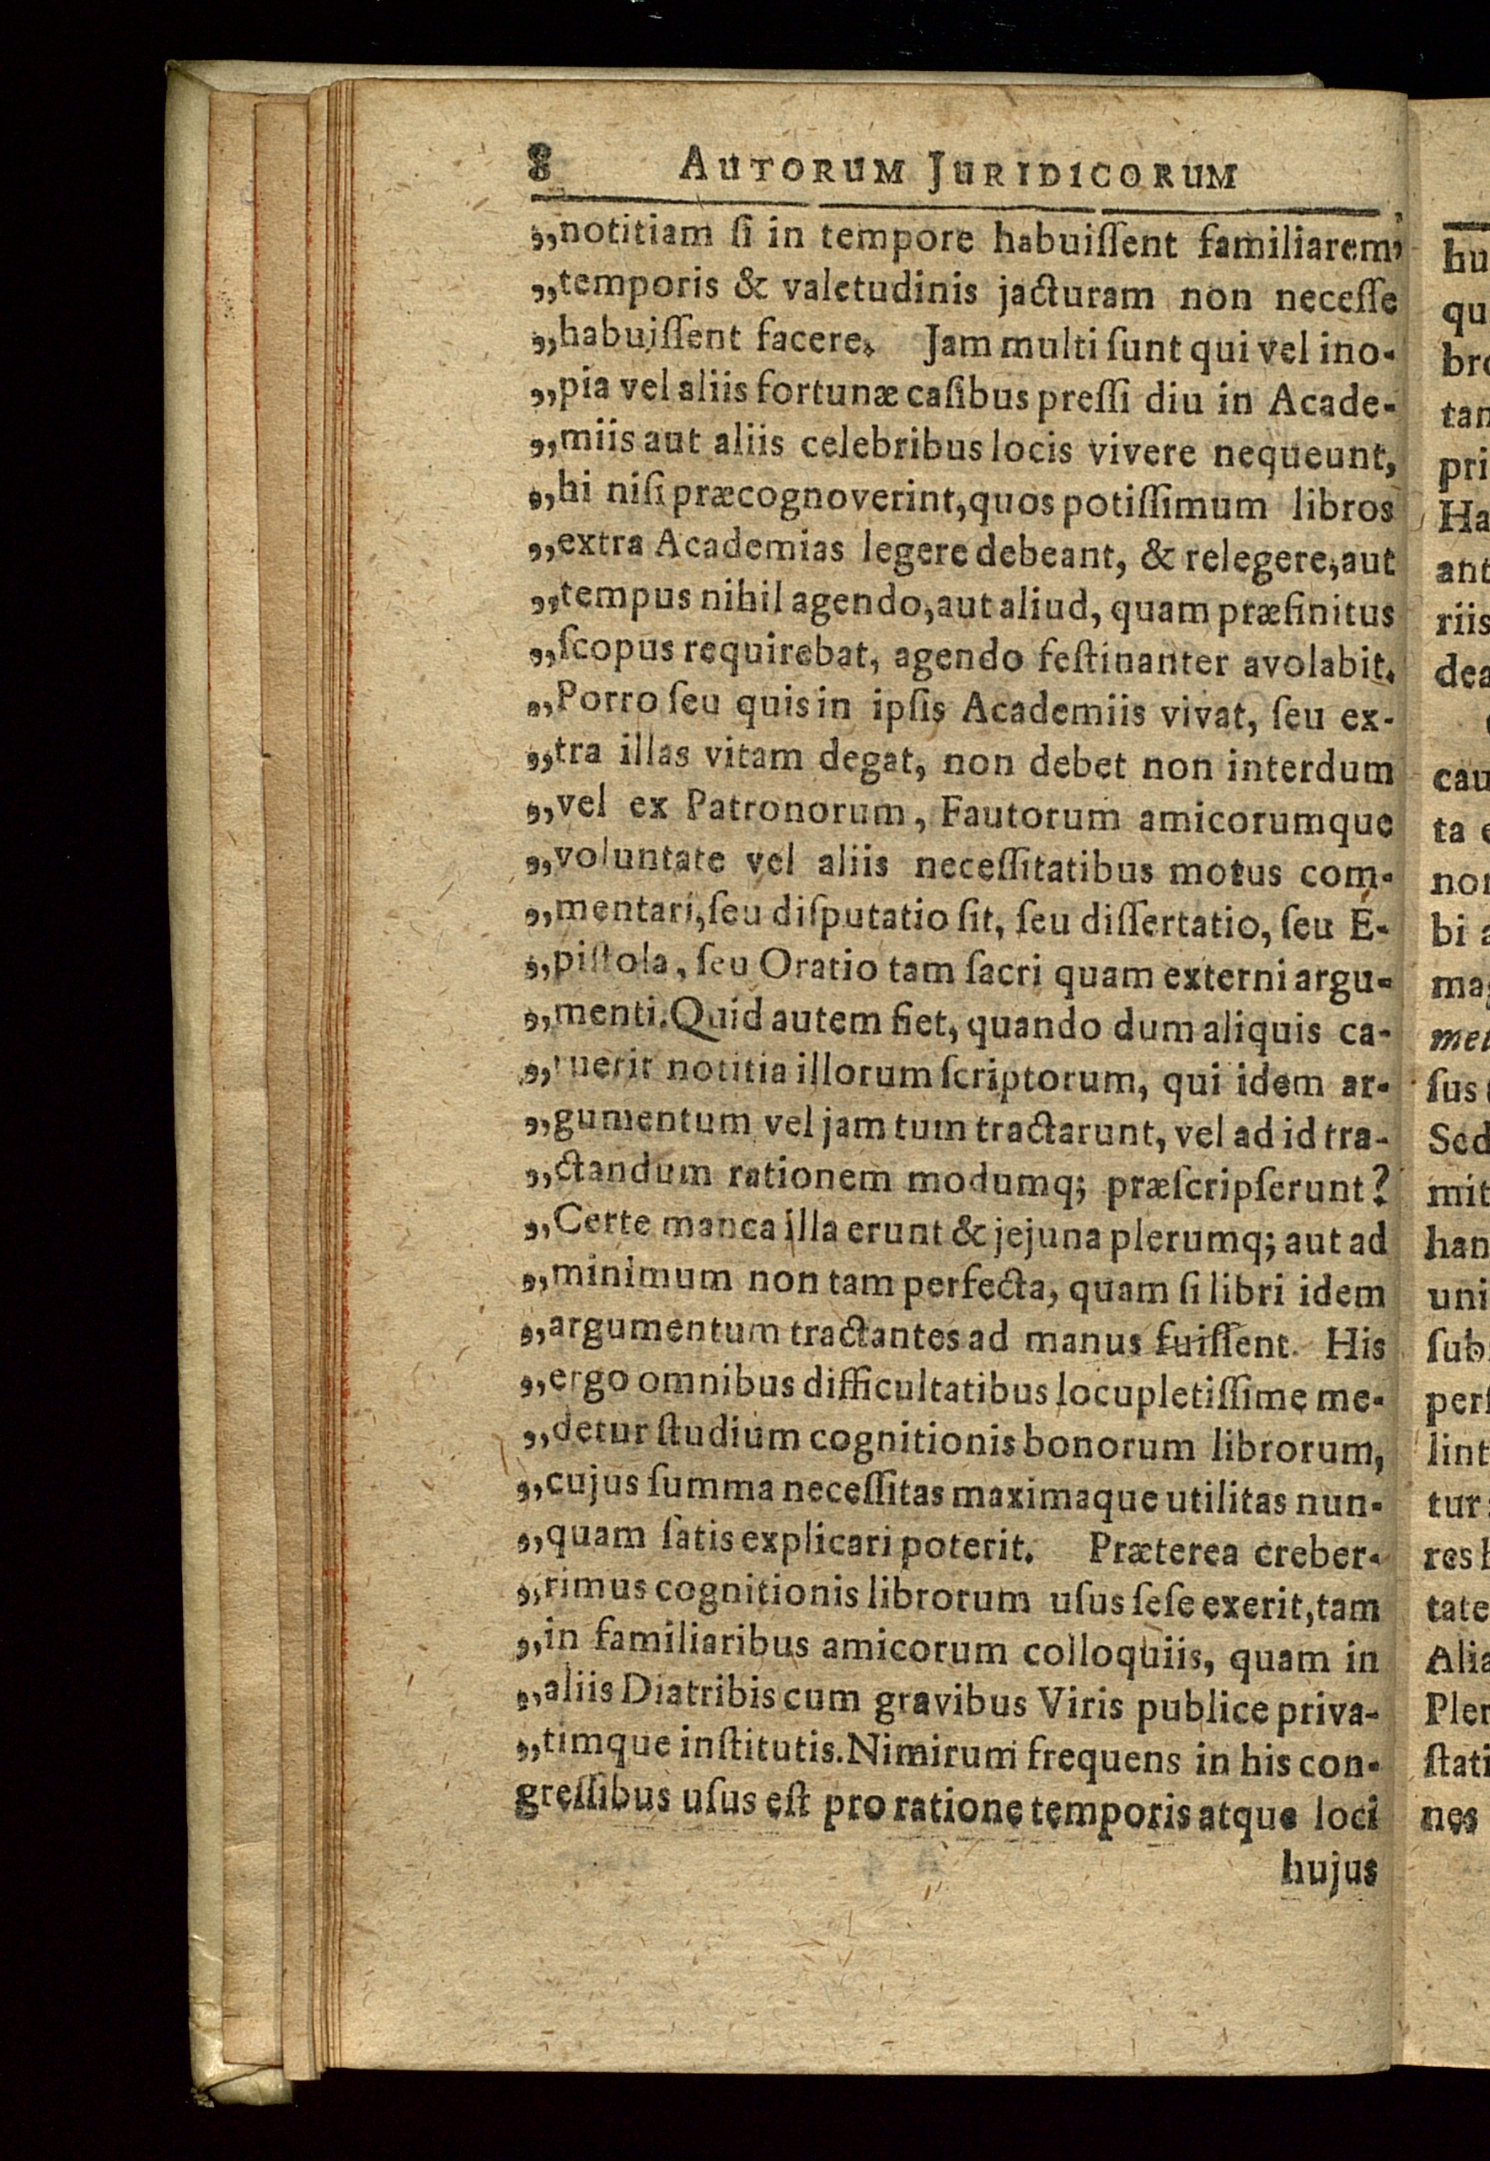 8 AUTORUM JURIDICORUM
„notitiam ſi in tempore habuiſſent familiarem,
„temporis & valetudinis jacturam non neceſſe
„habuiſſent facere. Jam multi ſunt qui vel ino-
„pia vel aliis fortunæ caſibus preſſi diu in Acade-
„miis aut aliis celebribus locis vivere nequeunt,
„hi niſi præcognoverint, quos potiſſimum libros
„extra Academias legere debeant, & relegere, aut
„tempus nihil agendo, aut aliud, quam præfinitus
„ſcopus requirebat, agendo feſtinanter avolabit.
„Porro ſeu quis in ipſis Academiis vivat, ſeu ex-
„tra illas vitam degat, non debet non interdum
„vel ex Patronorum, Fautorum amicorumque
„voluntate vel aliis neceſſitatibus motus com-
„mentari, ſeu diſputatio ſit, ſeu diſſertatio, ſeu E-
„piſtola, ſeu Oratio tam ſacri quam externi argu-
„menti. Quid autem fiet, quando dum aliquis ca-
„ruerit notitia illorum ſcriptorum, qui idem ar-
„gumentum vel jam tum tractarunt, vel ad id tra-
„ctandum rationem modumq; præſcripſerunt?
„Certe manca illa erunt & jejuna plerumq; aut ad
„minimum non tam perfecta, quam ſi libri idem
„argumentum tractantes ad manus fuiſſent. His
„ergo omnibus difficultatibus locupletiſſime me-
„detur ſtudium cognitionis bonorum librorum,
„cujus ſumma neceſſitas maximaque utilitas nun-
„quam ſatis explicari poterit. Præterea creber-
„rimus cognitionis librorum uſus ſeſe exerit, tam
„in familiaribus amicorum colloquiis, quam in
„aliis Diatribis cum gravibus Viris publice priva-
„timque inſtitutis. Nimirum frequens in his con-
greſſibus uſus eſt pro ratione temporis atque loci
hujus